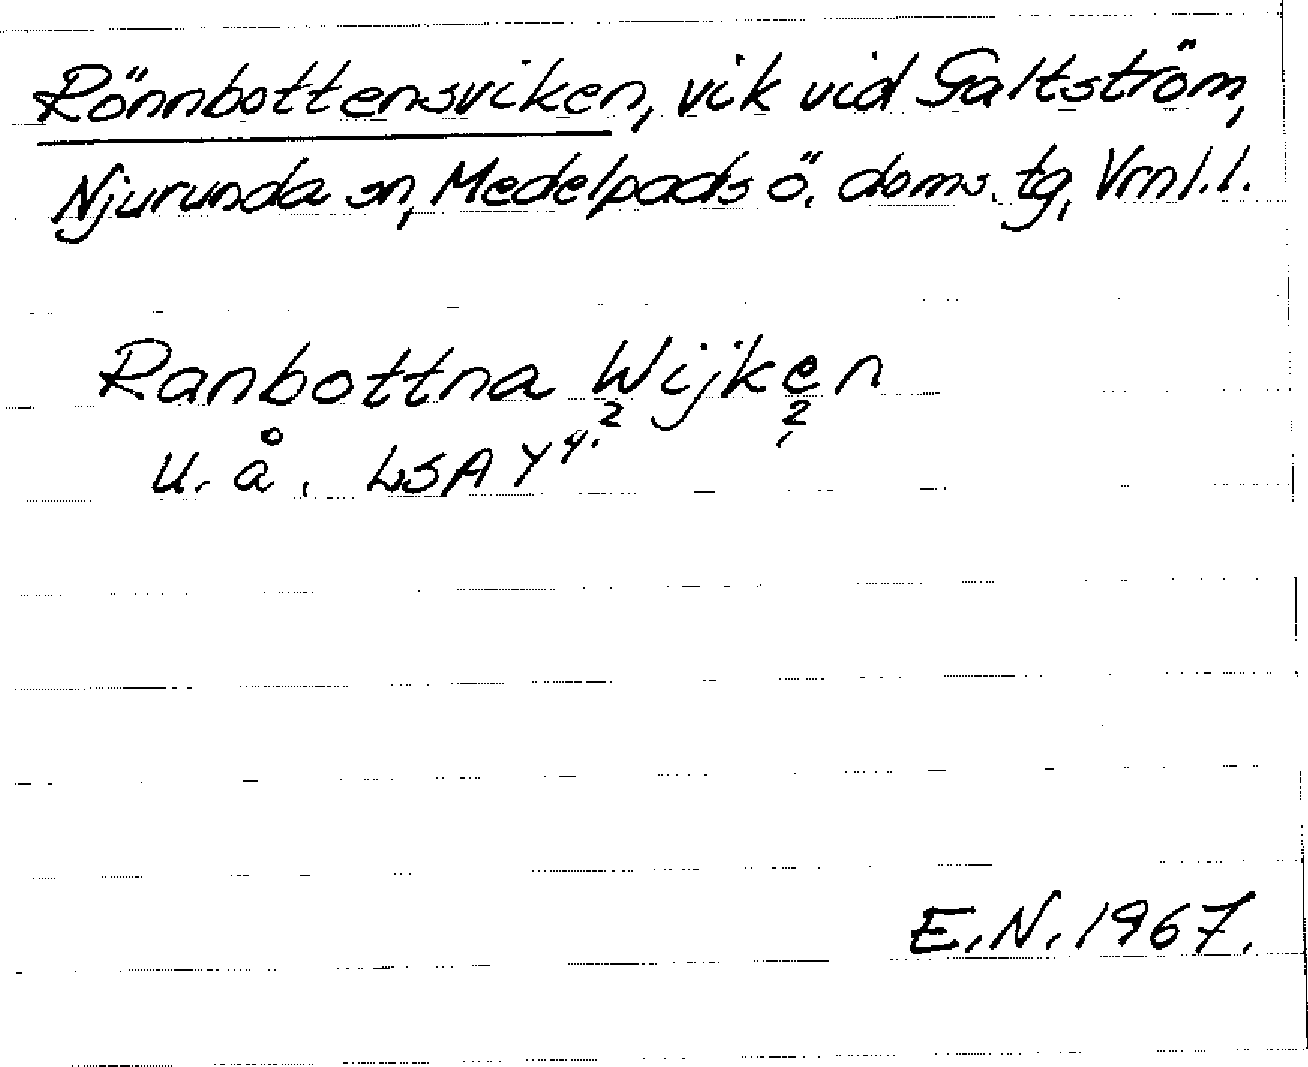 Rönnbottensviken, vik vid Galtström,
Njurunda sn, Medelpads ö. doms. tg, Vrnl.l.
Ranbottna Wijken
u. å. LSA Y 4:2 2
E.N. 1967.